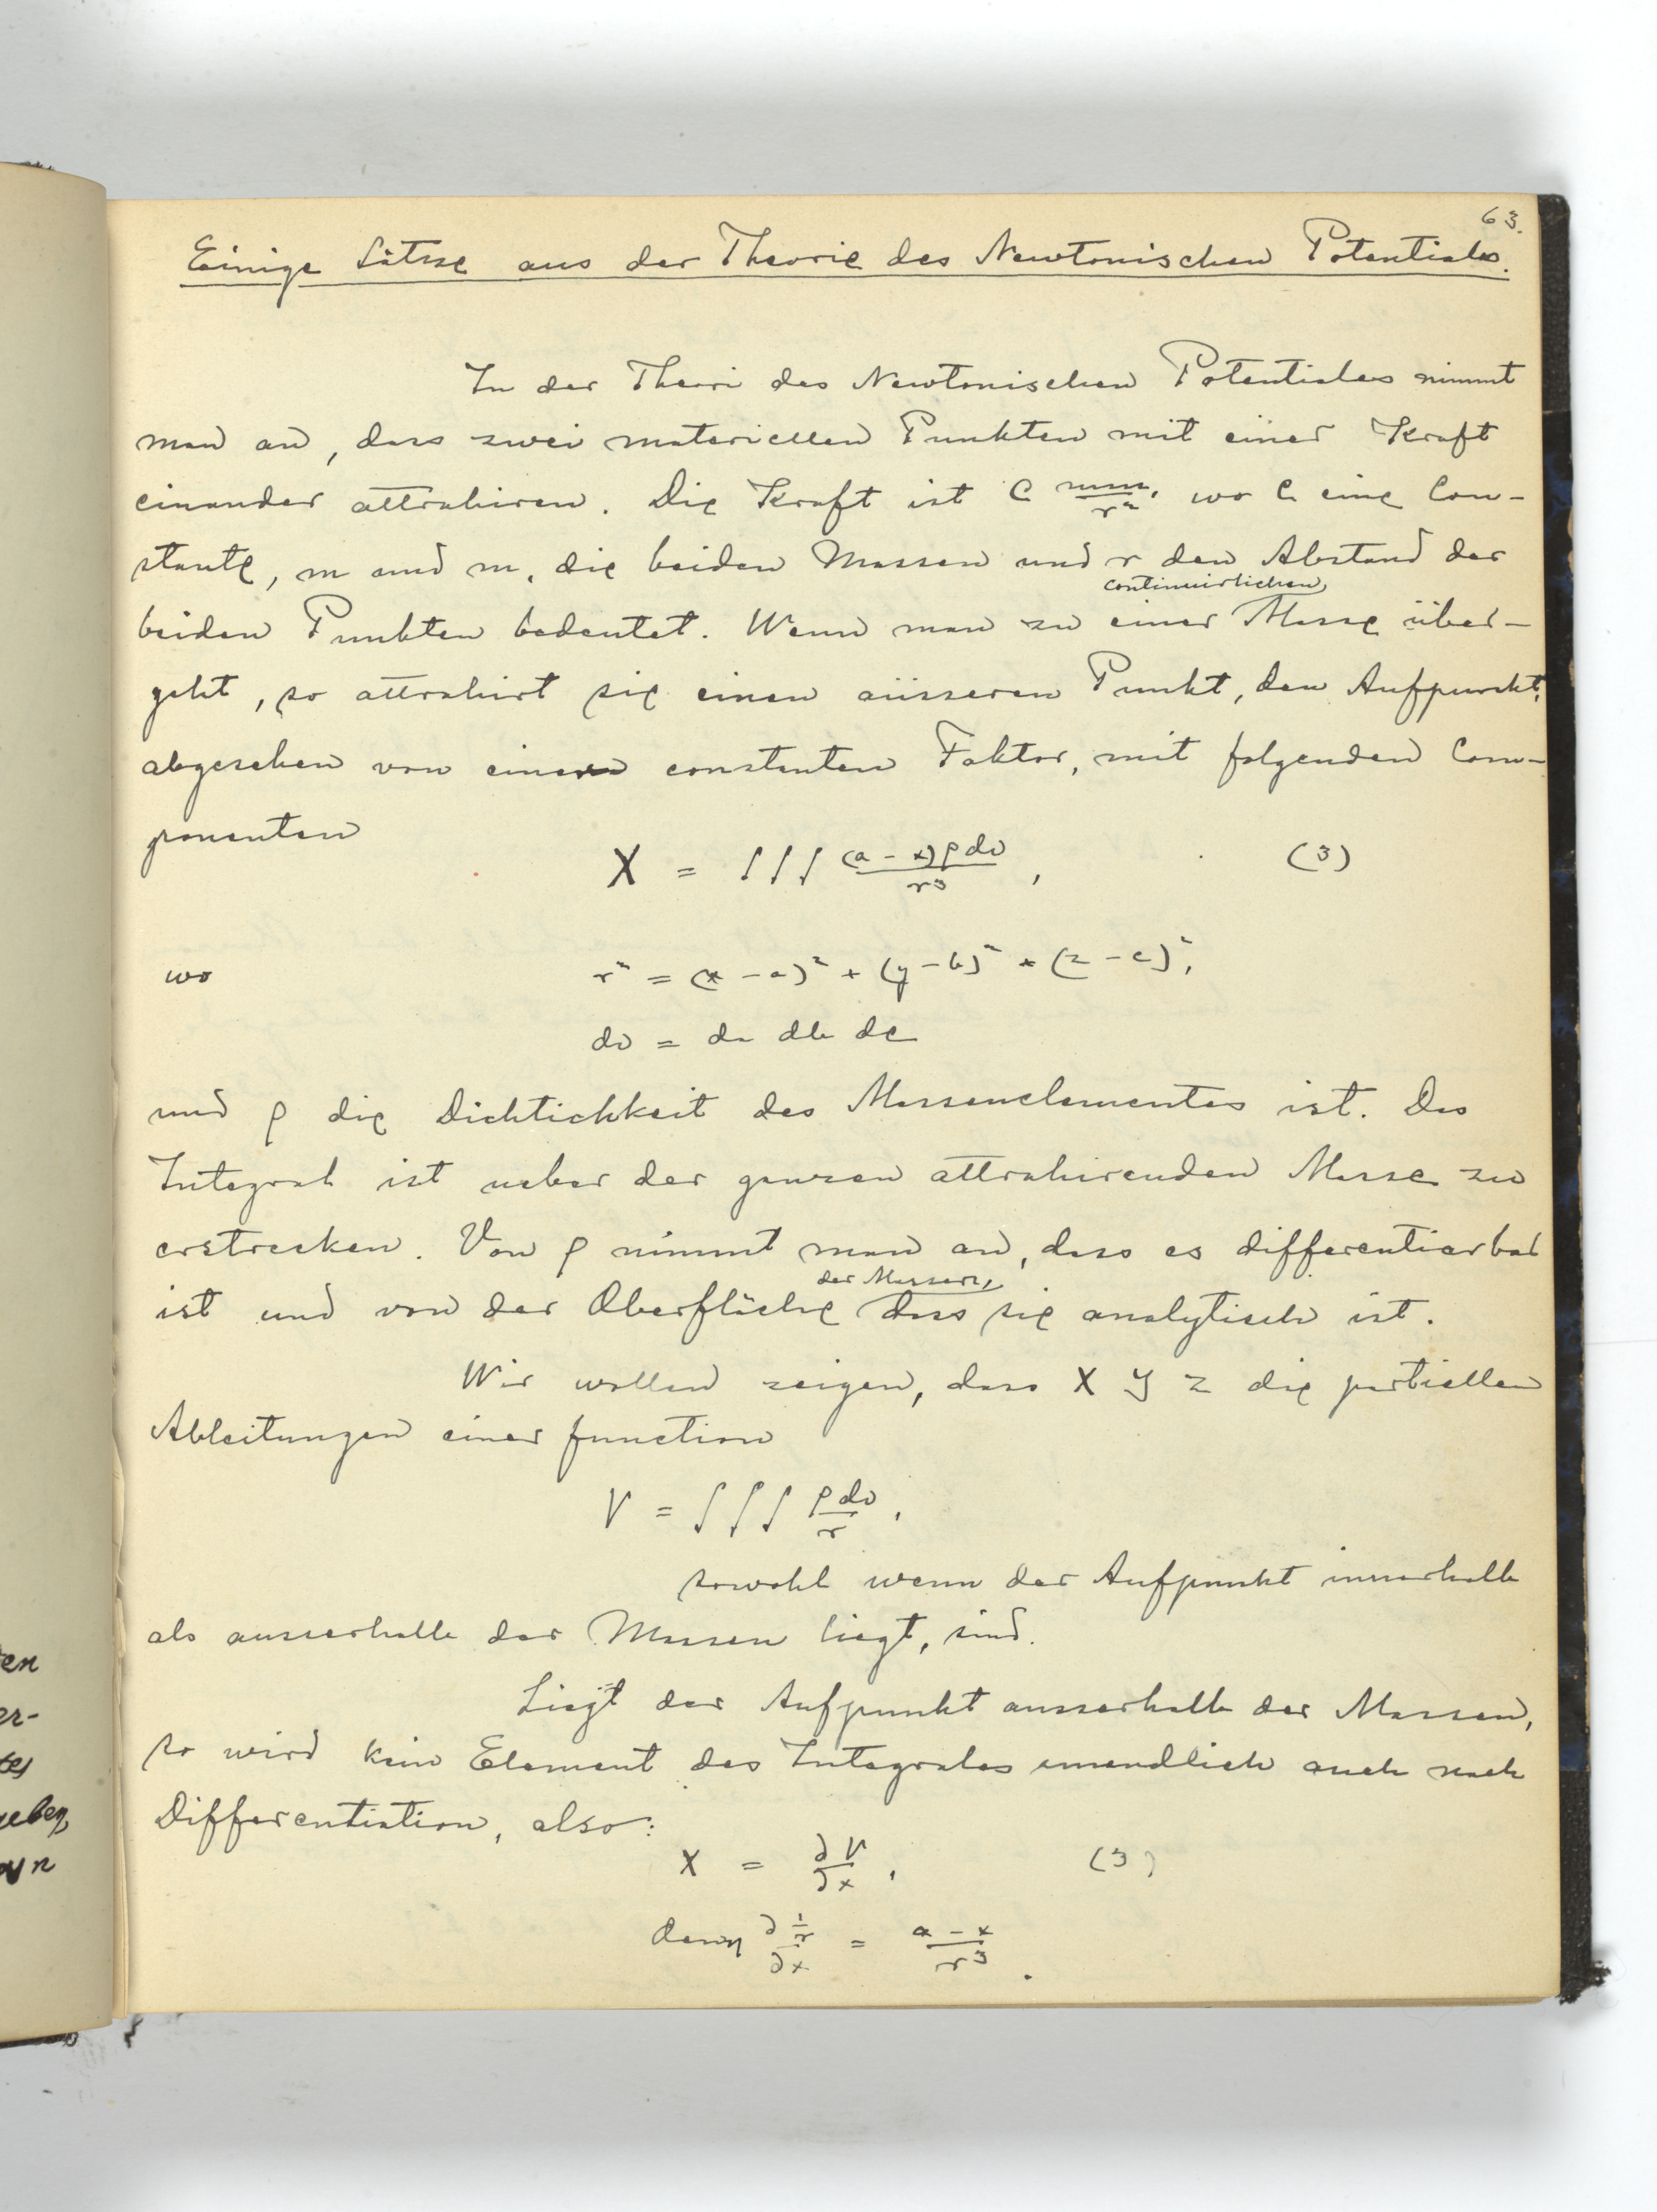 63.
Einige Sätze aus der Theorie des Newtonischen Potentiales.
In der Theori des Newtonischen Potentiales nimmt
man an, dass zwei materiellen Punkten mit einer Kraft
einander attrahiren. Die Kraft ist C mm₁/r², wo C eine Con-
stante, m und m₁ die beiden Massen und r den Abstand der
continuirlichen
beiden Punkten bedeutet. Wenn man zu einer Masse über-
geht, so attrahirt sie einen äüsseren Punkt, den Aufpunkt,
abgesehen von einem constanten Faktor, mit folgenden Com-
ponenten
X = ∫∫∫ (a - x) ρ dv / r³ , (3)
wo r² = (x - a)² + (y - b)² + (z - c)²,
dv = da db dc
und ρ die Dichtichkeit des Massenelementes ist. Das
Integral ist ueber der ganzen attrahirenden Masse zu
erstrecken. Von ρ nimmt man an, dass es differentiarbar
der Massen,
ist und von der Oberfläche dass sie analytisch ist.
Wir wollen zeigen, dass X Y Z die partiellen
Ableitungen einer function
V = ∫∫∫ ρ dv / r ,
sowohl wenn der Aufpunkt innerhalb
als ausserhalb der Massen liegt, sind.
Liegt der Aufpunkt ausserhalb der Massen,
so wird kein Element des Integrales unendlich auch nach
Differentiation, also:
X = ∂V/∂x , (3)
denn ∂ 1/r / ∂x = a - x / r³ .
en
er-
tes
geben,
n